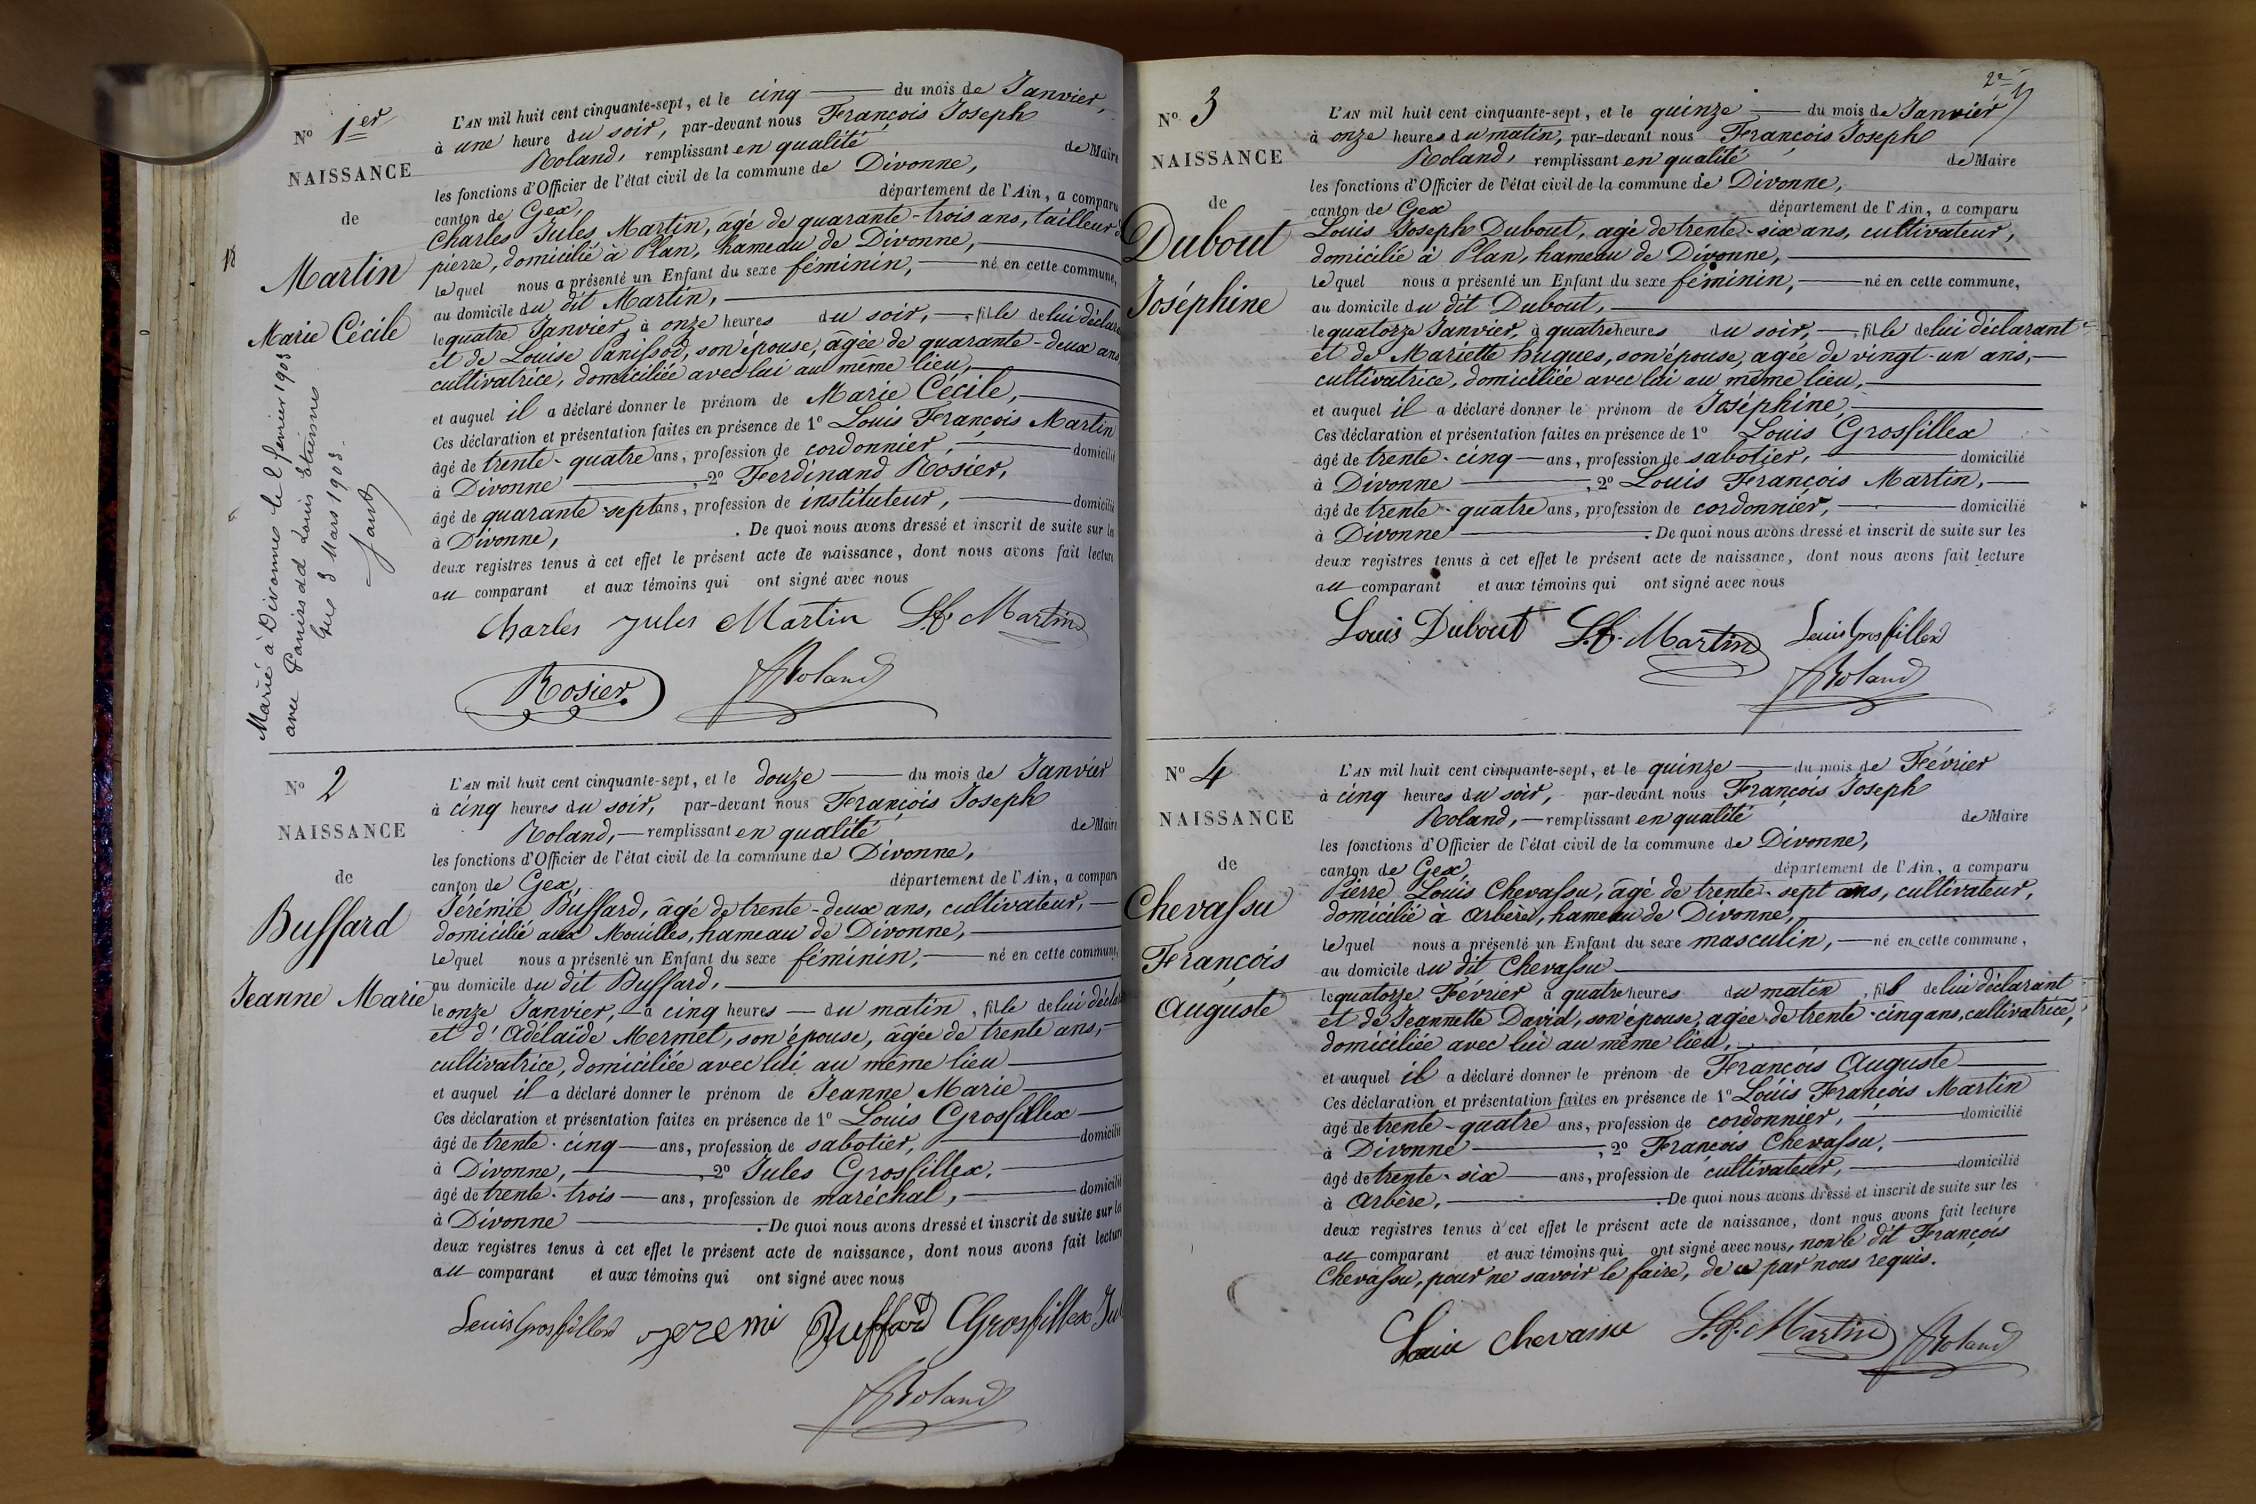 N° 1er
NAISSANCE
de
Martin
Marie Cécile
18
Marié à Divonne le 2 février 1903
avec Panissod Louis Etienne
Gex 3 Mars 1903.
L'AN mil huit cent cinquante-sept, et le cinq du mois de Janvier,
à une heure du soir, par-devant nous François Joseph
Roland, remplissant en qualité de Maire
les fonctions d'Officier de l'état civil de la commune de Divonne,
canton de Gex, département de l'Ain, a comparu
Charles Jules Martin, agé de quarante-trois ans, tailleur de
pierre, domicilié à Plan, hameau de Divonne,
lequel nous a présenté un Enfant du sexe féminin, né en cette commune,
au domicile du dit Martin,
le quatre Janvier, à onze heures du soir, fille de lui déclara
et de Louise Panissod, son épouse, âgée de quarante-deux ans
cultivatrice, domiciliée avec lui au même lieu,
et auquel il a déclaré donner le prénom de Marie Cécile,
Ces déclaration et présentation faites en présence de 1° Louis François Martin
âgé de trente-quatre ans, profession de cordonnier, domicilié
à Divonne, 2° Ferdinand Rosier,
âgé de quarante-sept ans, profession de instituteur, domicilié
à Divonne, . De quoi nous avons dressé et inscrit de suite sur les
deux registres tenus à cet effet le présent acte de naissance, dont nous avons fait lecture
au comparant et aux témoins qui ont signé avec nous
Charles Jules Martin L.f. Martin
Rosier. Roland
N° 2
NAISSANCE
de
Buffard
Jeanne Marie
L'AN mil huit cent cinquante-sept, et le douze du mois de Janvier
à cinq heures du soir, par-devant nous François Joseph
Roland, remplissant en qualité de Maire
les fonctions d'Officier de l'état civil de la commune de Divonne,
canton de Gex, département de l'Ain, a comparu
Jérémie Buffard, âgé de trente-deux ans, cultivateur,
domicilié aux Mouilles, hameau de Divonne,
lequel nous a présenté un Enfant du sexe féminin, né en cette commune,
au domicile du dit Buffard,
le onze Janvier, à cinq heures du matin, fille de lui décla
et d'Adélaïde Mermet, son épouse, âgée de trente ans,
cultivatrice, domiciliée avec lui au même lieu
et auquel il a déclaré donner le prénom de Jeanne Marie
Ces déclaration et présentation faites en présence de 1° Louis Grosfillex
âgé de trente-cinq ans, profession de sabotier, domicilié
à Divonne, 2° Jules Grosfillex,
âgé de trente-trois ans, profession de maréchal, domicilié
à Divonne . De quoi nous avons dressé et inscrit de suite sur les
deux registres tenus à cet effet le présent acte de naissance, dont nous avons fait lecture
au comparant et aux témoins qui ont signé avec nous
Louis Grosfillex Jeremi Buffard Grosfillex Jul
Roland
2e
N° 3
NAISSANCE
de
Dubout
Joséphine
L'AN mil huit cent cinquante-sept, et le quinze du mois de Janvier
à onze heures du matin, par-devant nous François Joseph
Roland, remplissant en qualité de Maire
les fonctions d'Officier de l'état civil de la commune de Divonne,
canton de Gex département de l'Ain, a comparu
Louis Joseph Dubout, agé de trente-six ans, cultivateur,
domicilié à Plan, hameau de Divonne,
lequel nous a présenté un Enfant du sexe féminin, né en cette commune,
au domicile du dit Dubout,
le quatorze Janvier, à quatre heures du soir, fille de lui déclarant
et de Mariette hugues, son épouse, agée de vingt-un ans,
cultivatrice, domiciliée avec lui au même lieu,
et auquel il a déclaré donner le prénom de Joséphine,
Ces déclaration et présentation faites en présence de 1° Louis Grosfillex
âgé de trente-cinq ans, profession de sabotier, domicilié
à Divonne, 2° Louis François Martin,
âgé de trente-quatre ans, profession de cordonnier, domicilié
à Divonne . De quoi nous avons dressé et inscrit de suite sur les
deux registres tenus à cet effet le présent acte de naissance, dont nous avons fait lecture
au comparant et aux témoins qui ont signé avec nous
Louis Dubout L.f. Martin Louis Grosfillex
Roland
N° 4
NAISSANCE
de
Chevassu
François
Auguste
L'AN mil huit cent cinquante-sept, et le quinze du mois de Février
à cinq heures du soir, par-devant nous François Joseph
Roland, remplissant en qualité de Maire
les fonctions d'Officier de l'état civil de la commune de Divonne,
canton de Gex, département de l'Ain, a comparu
Pierre Louis Chevassu, âgé de trente-sept ans, cultivateur,
domicilié à Arbère, hameau de Divonne,
lequel nous a présenté un Enfant du sexe masculin, né en cette commune,
au domicile du dit Chevassu
le quatorze Février à quatre heures du matin, fils de lui déclarant
et de Jeannette David, son épouse, agée de trente-cinq ans, cultivatrice,
domiciliée avec lui au même lieu,
et auquel il a déclaré donner le prénom de François Auguste
Ces déclaration et présentation faites en présence de 1° Louis François Martin
âgé de trente-quatre ans, profession de cordonnier, domicilié
à Divonne, 2° François Chevassu,
âgé de trente-six ans, profession de cultivateur, domicilié
à Arbère, . De quoi nous avons dressé et inscrit de suite sur les
deux registres tenus à cet effet le présent acte de naissance, dont nous avons fait lecture
au comparant et aux témoins qui ont signé avec nous, non le dit François
Chevassu, pour ne savoir le faire, de ce par nous requis.
Louis Chevassu L.f. Martin Roland